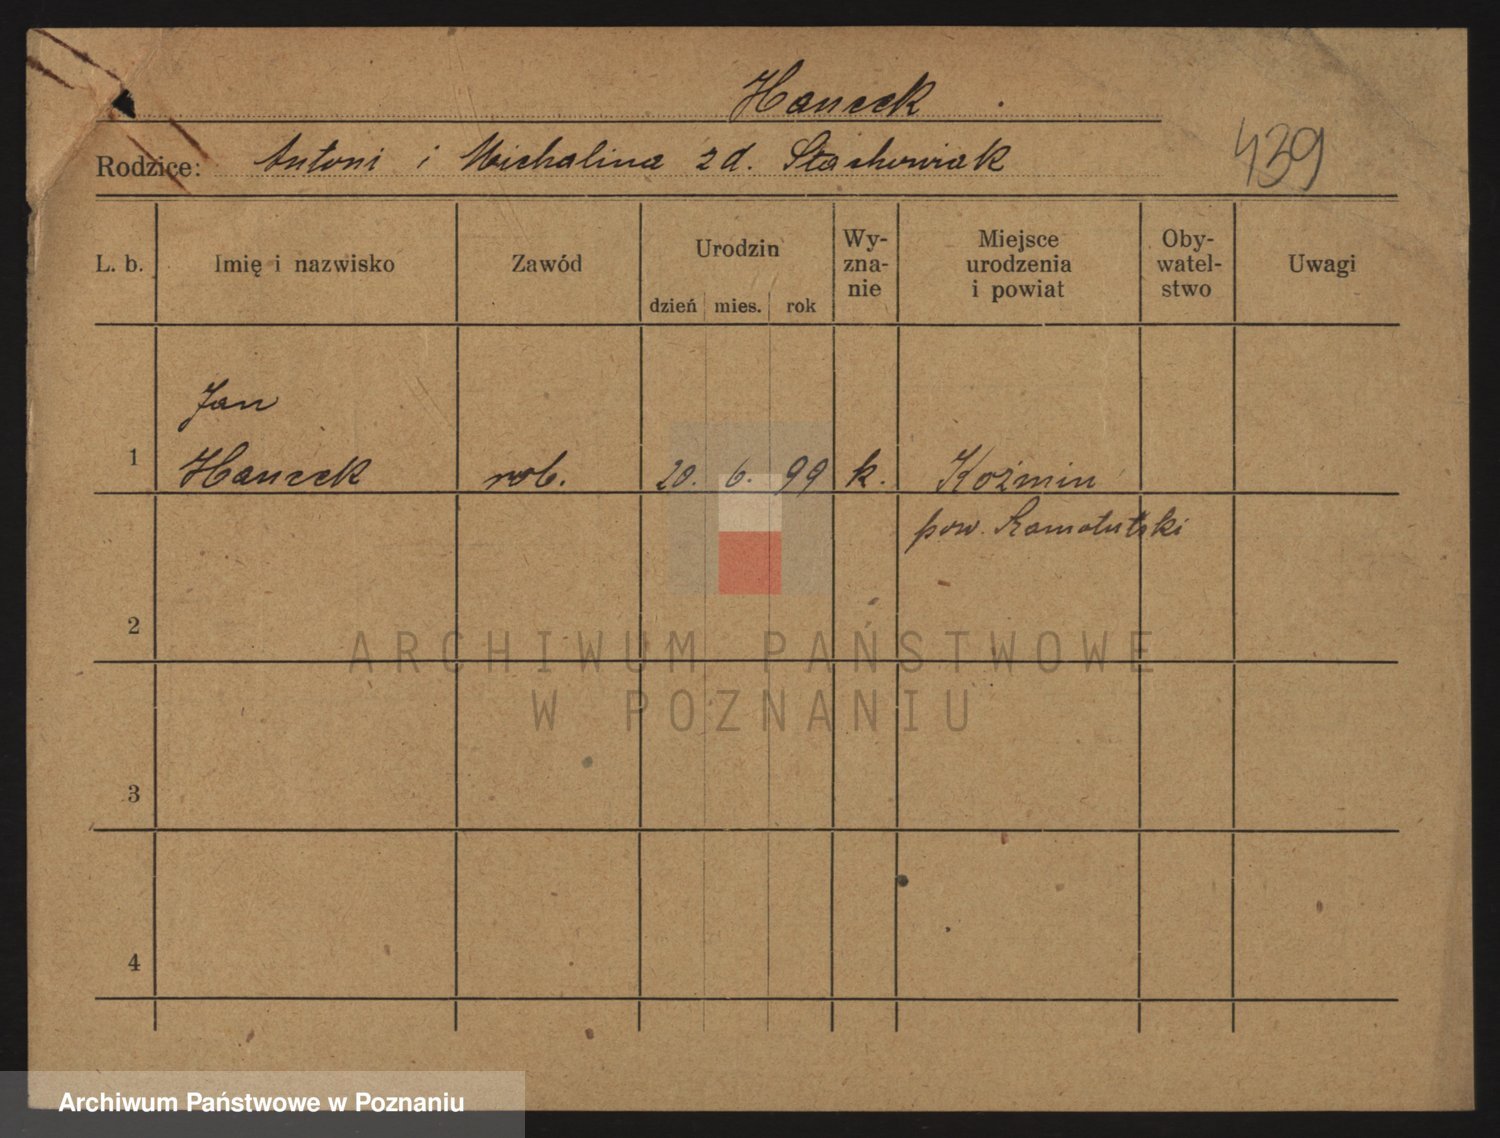 Hancek
Rodzice: Antoni i Michalina zd. Stachowiak
439
L. b. Imię i nazwisko Zawód Urodzin dzień mies. rok Wy-zna-nie Miejsce urodzenia i powiat Oby-watel-stwo Uwagi
Jan
1 Hancek rob. 20. 6. 99 k. Koźmin
pow. Szamotulski
2
ARCHIWUM PAŃSTWOWE
W POZNANIU
3
4
Archiwum Państwowe w Poznaniu